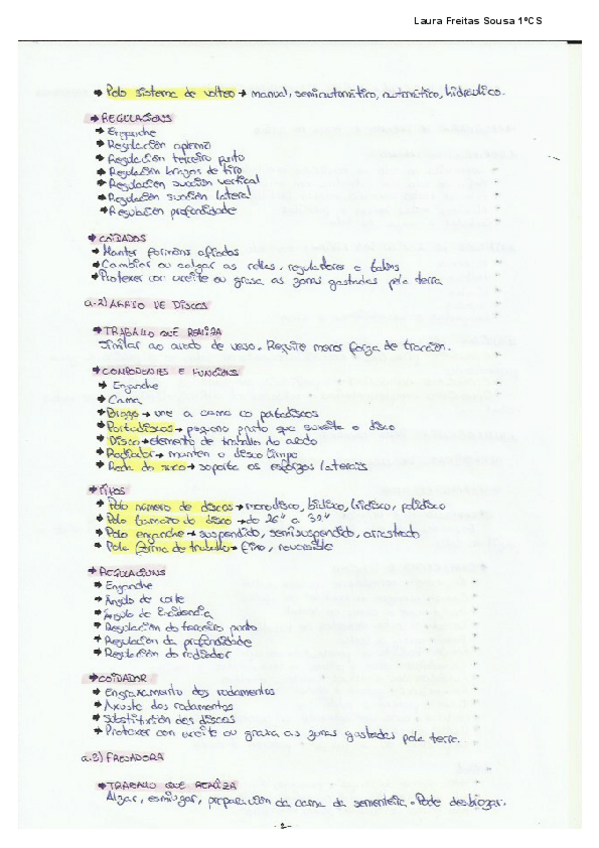 Laura Freitas Sousa 1ºCS
→ Polo sistema de volteo → manual, semiautomático, automático, hidráulico.
→ REGULACIÓNS
→ Enganche
→ Regulación apromo
→ Regulación terceiro punto
→ Regulación brazos de tiro
→ Regulación succión vertical
→ Regulación succión lateral
→ Regulación profundidade
→ COIDADOS
→ Manter formóns afiados
→ Cambiar ou calzar as rellas, reguladores e
→ Protexer con aceite ou graxa as zonas gastadas pola terra
a.2) ARADO DE DISCOS
→ TRABALLO QUE REALIZA
Similar ao arado de veso. Require menor forza de tracción.
→ COMPOÑENTES E FUNCIÓNS
→ Enganche
→ Cama
→ Brazo → une a cama co portadiscos
→ Portadiscos → pequena parte que suxeita o disco
→ Disco → elemento de traballo do arado
→ Rodiador → manten o disco limpo
→ Roda do suco → soporta os esforzos laterais
→ TIPOS
→ Polo número de discos → monodisco, bidisco, tridisco, polidisco
→ Polo tamaño do disco → do 26" a 32"
→ Polo enganche → suspendido, semisuspendido, arrastrado
→ Pola forma de traballo → fixo, reversible
→ REGULACIÓNS
→ Enganche
→ Ángulo de corte
→ Ángulo de incidencia
→ Regulación do terceiro punto
→ Regulación da profundidade
→ Regulación do rodiador
→ COIDADOR
→ Engraxamento dos rodamentos
→ Axuste dos rodamentos
→ Substitución dos discos
→ Protexer con aceite ou graxa as zonas gastadas pola terra.
a.3) FRESADORA
→ TRABALLO QUE REALIZA
Alzar, esmiuzar, preparación da cama da sementeira. Pode desbrozar.
-2-